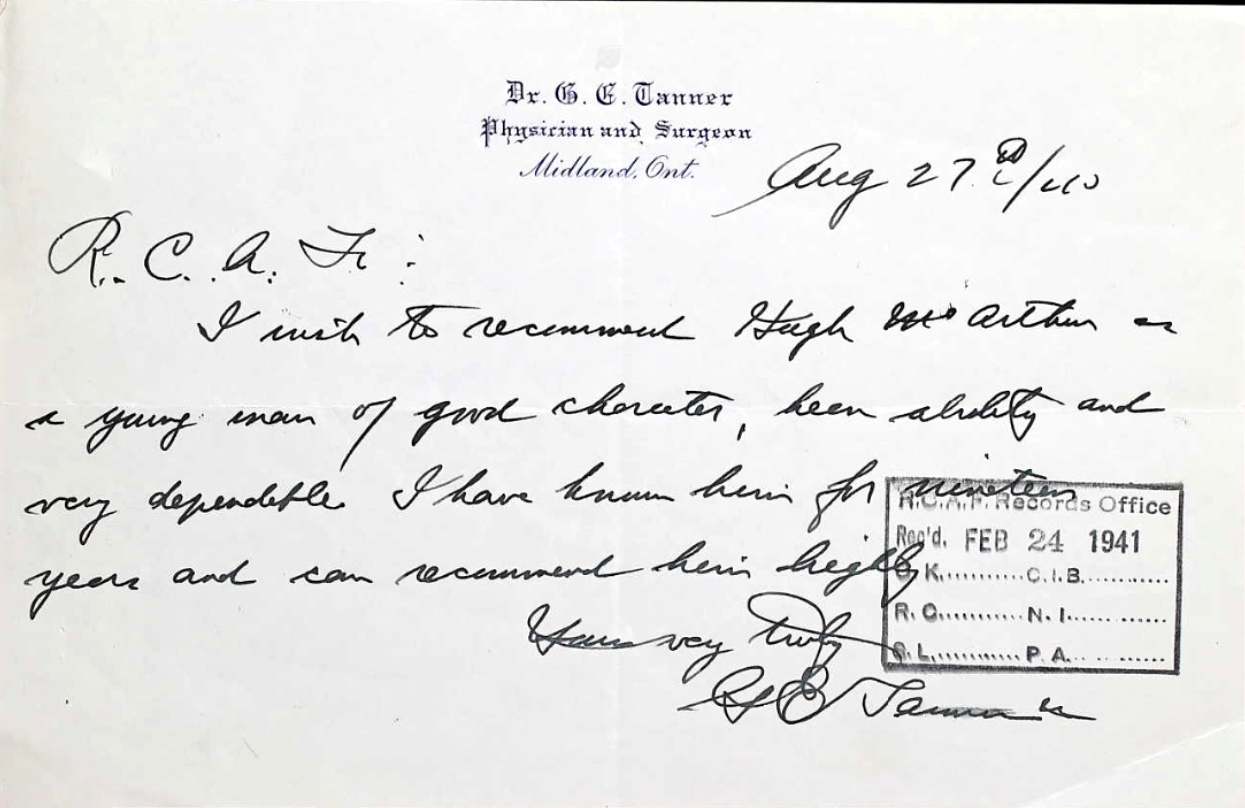 Dr. G. E. Tanner
Physician and Surgeon
Midland, Ont.
Aug 27th/40
R. C. A. F. :
I wish to recommend Hugh McArthur as
a young man of good character, keen ability and
very dependable. I have known him for nineteen
years and can recommend him highly
Yours very truly
G E Tanner
R.C.A.F. Records Office
Rec'd. FEB 24 1941
K.......... C.I.B...........
R. C........... N. I...........
S. L........... P. A...........